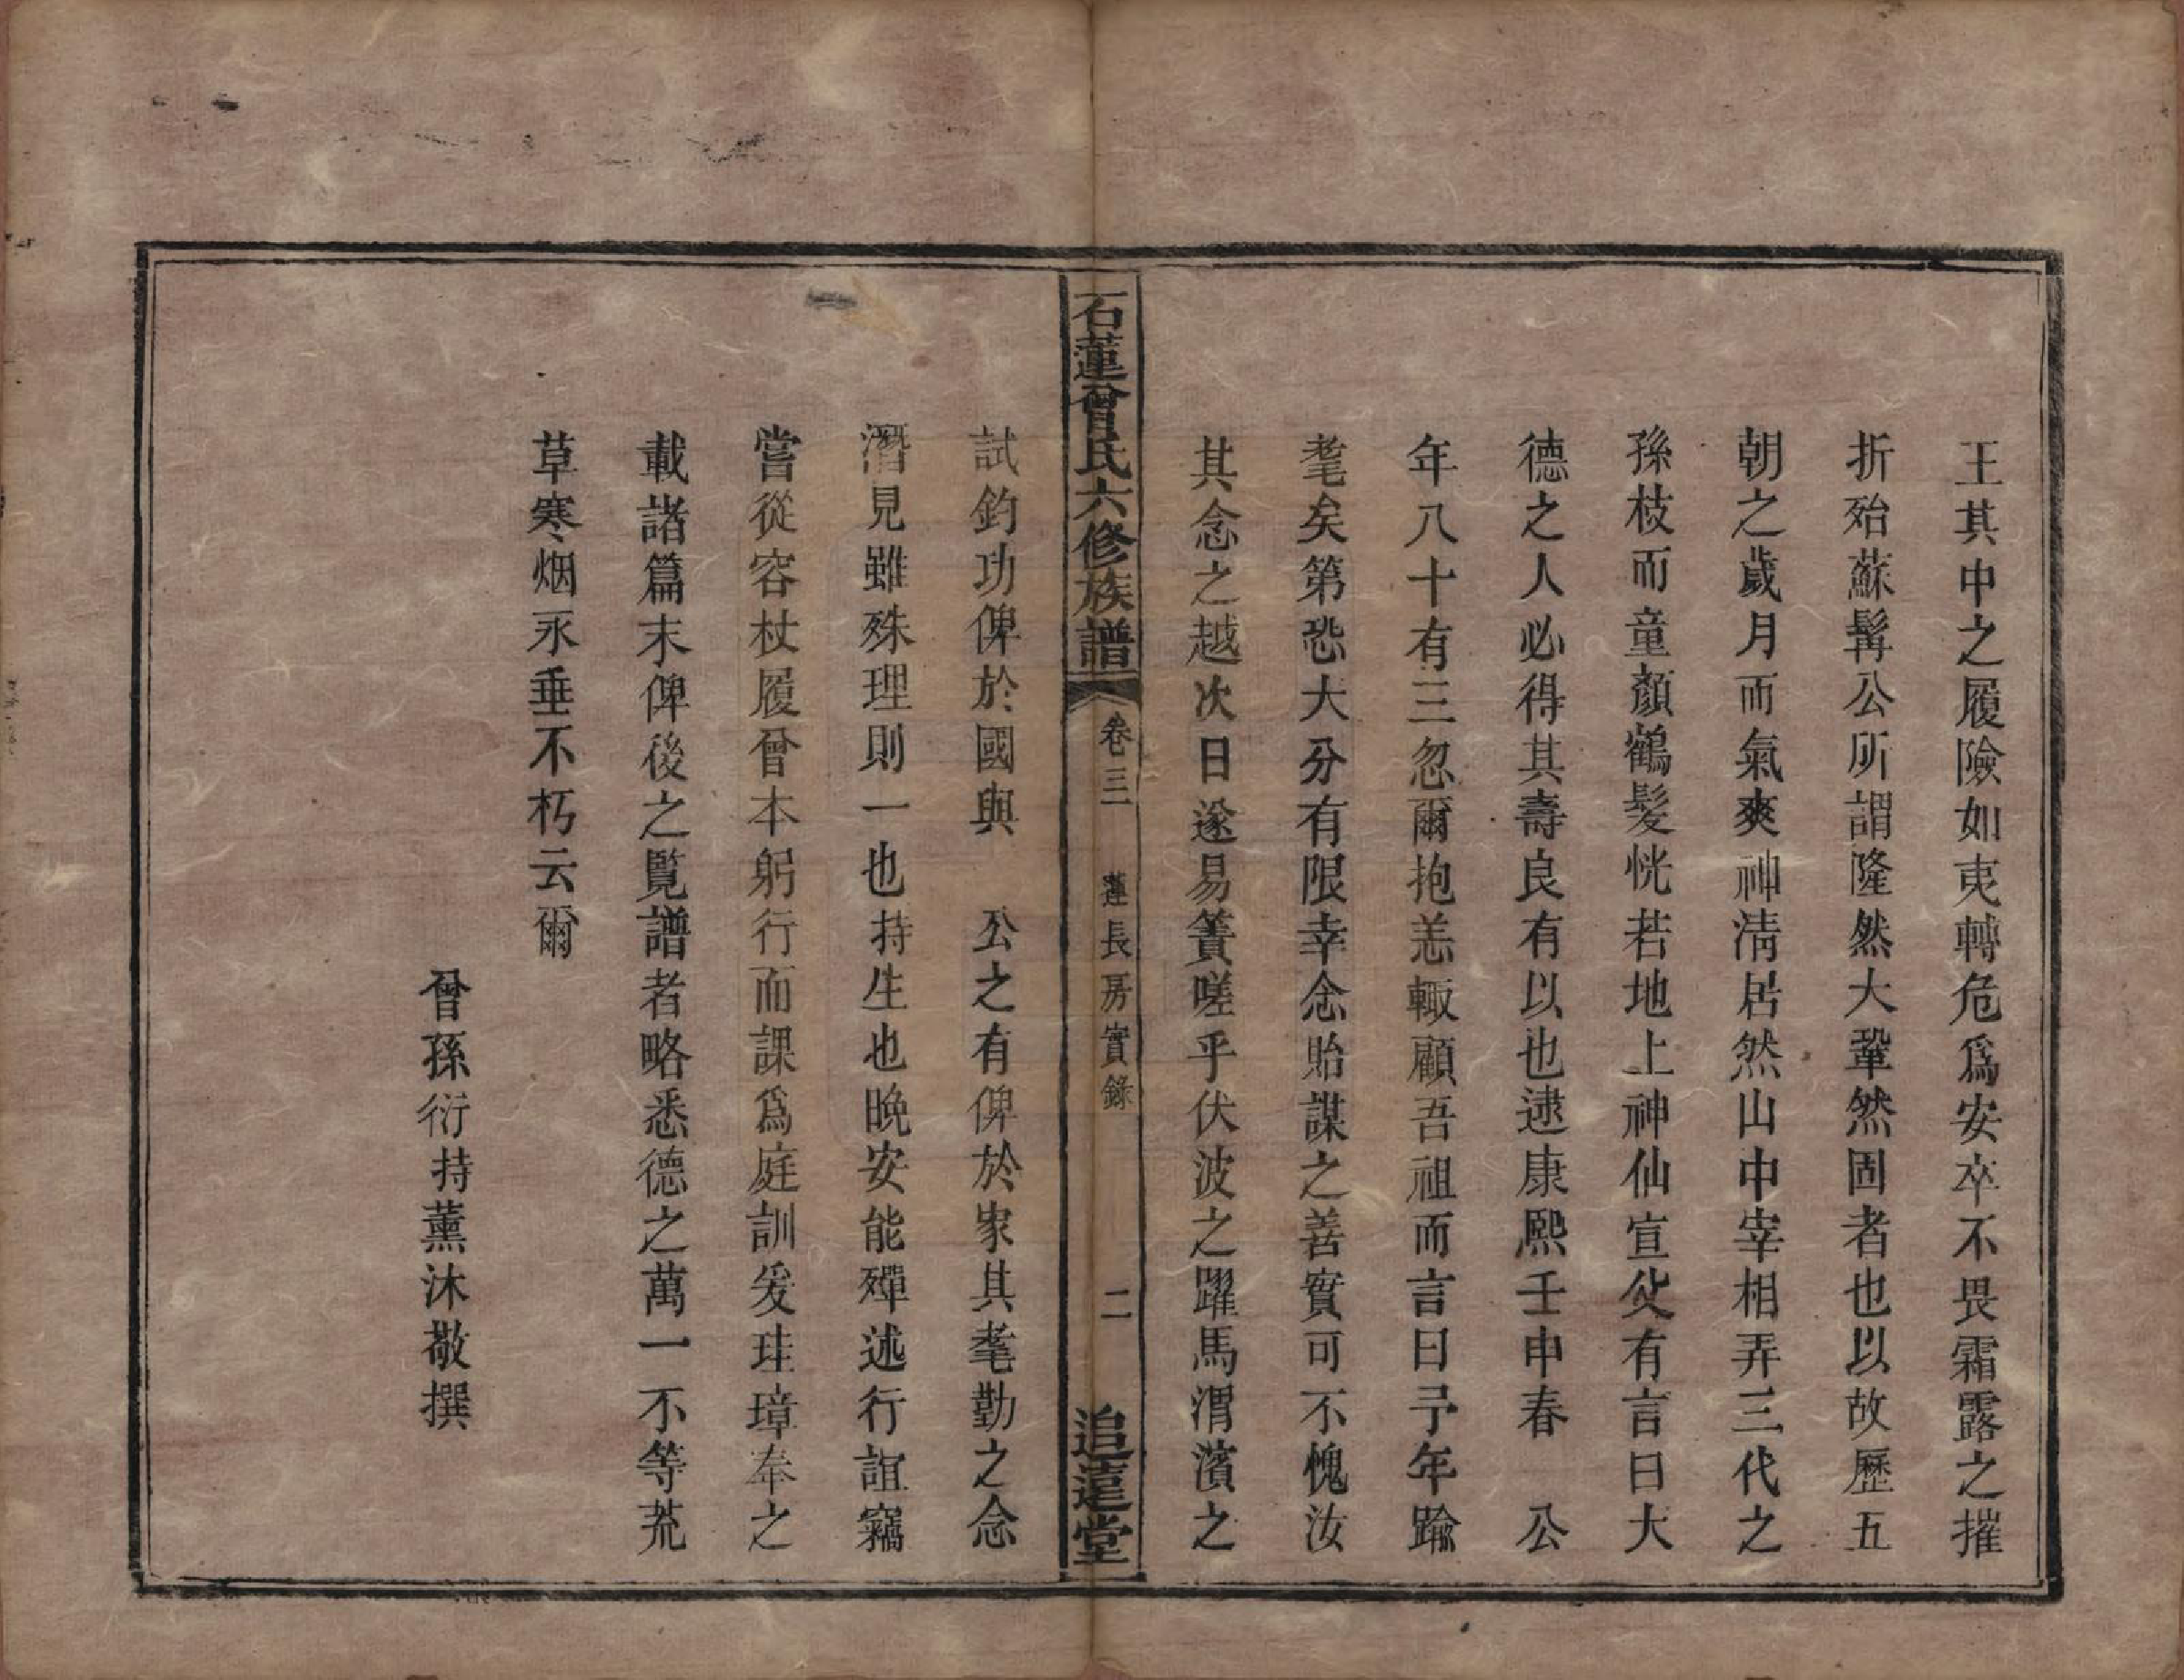 王其中之履險如夷轉危爲安卒不畏霜露之摧
折殆蘇髯公所謂隆然大鞏然固者也以故歷五
朝之歲月而氣爽神淸居然山中宰相弄三代之
孫枝而童顏鶴髮恍若地上神仙宣父有言曰大
德之人必得其壽良有以也逮康熙壬申春　公
年八十有三忽爾抱恙輙顧吾祖而言曰予年踰
耄矣第恐大分有限幸念貽謀之善實可不愧汝
其念之越次日遂易簀嗟乎伏波之躍馬渭濱之
石蓮曾氏六修族譜　卷三　蓮長房實錄　二　追遠堂
試釣功俾於國與　公之有俾於家其耄勤之念
潛見雖殊理則一也持生也晚安能殫述行誼竊
嘗從容杖履曾本躬行而課爲庭訓爰珪璋奉之
載諸篇末俾後之覽譜者略悉德之萬一不等荒
草寒烟永垂不朽云爾
曾孫衍持薰沐敬撰